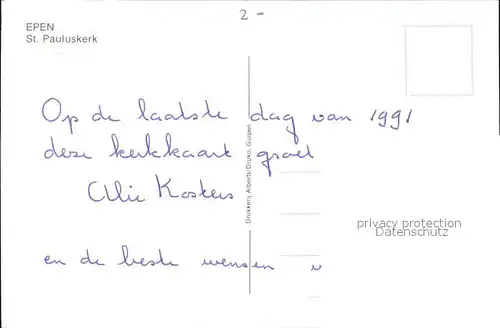 2-
EPEN
St. Pauluskerk
Op de laatste dag van 1991
deze kerkkaart groet
Alie Kosters
en de beste wensen v
Drukkerij Alberts/Druko, Gulpen
privacy protection
Datenschutz